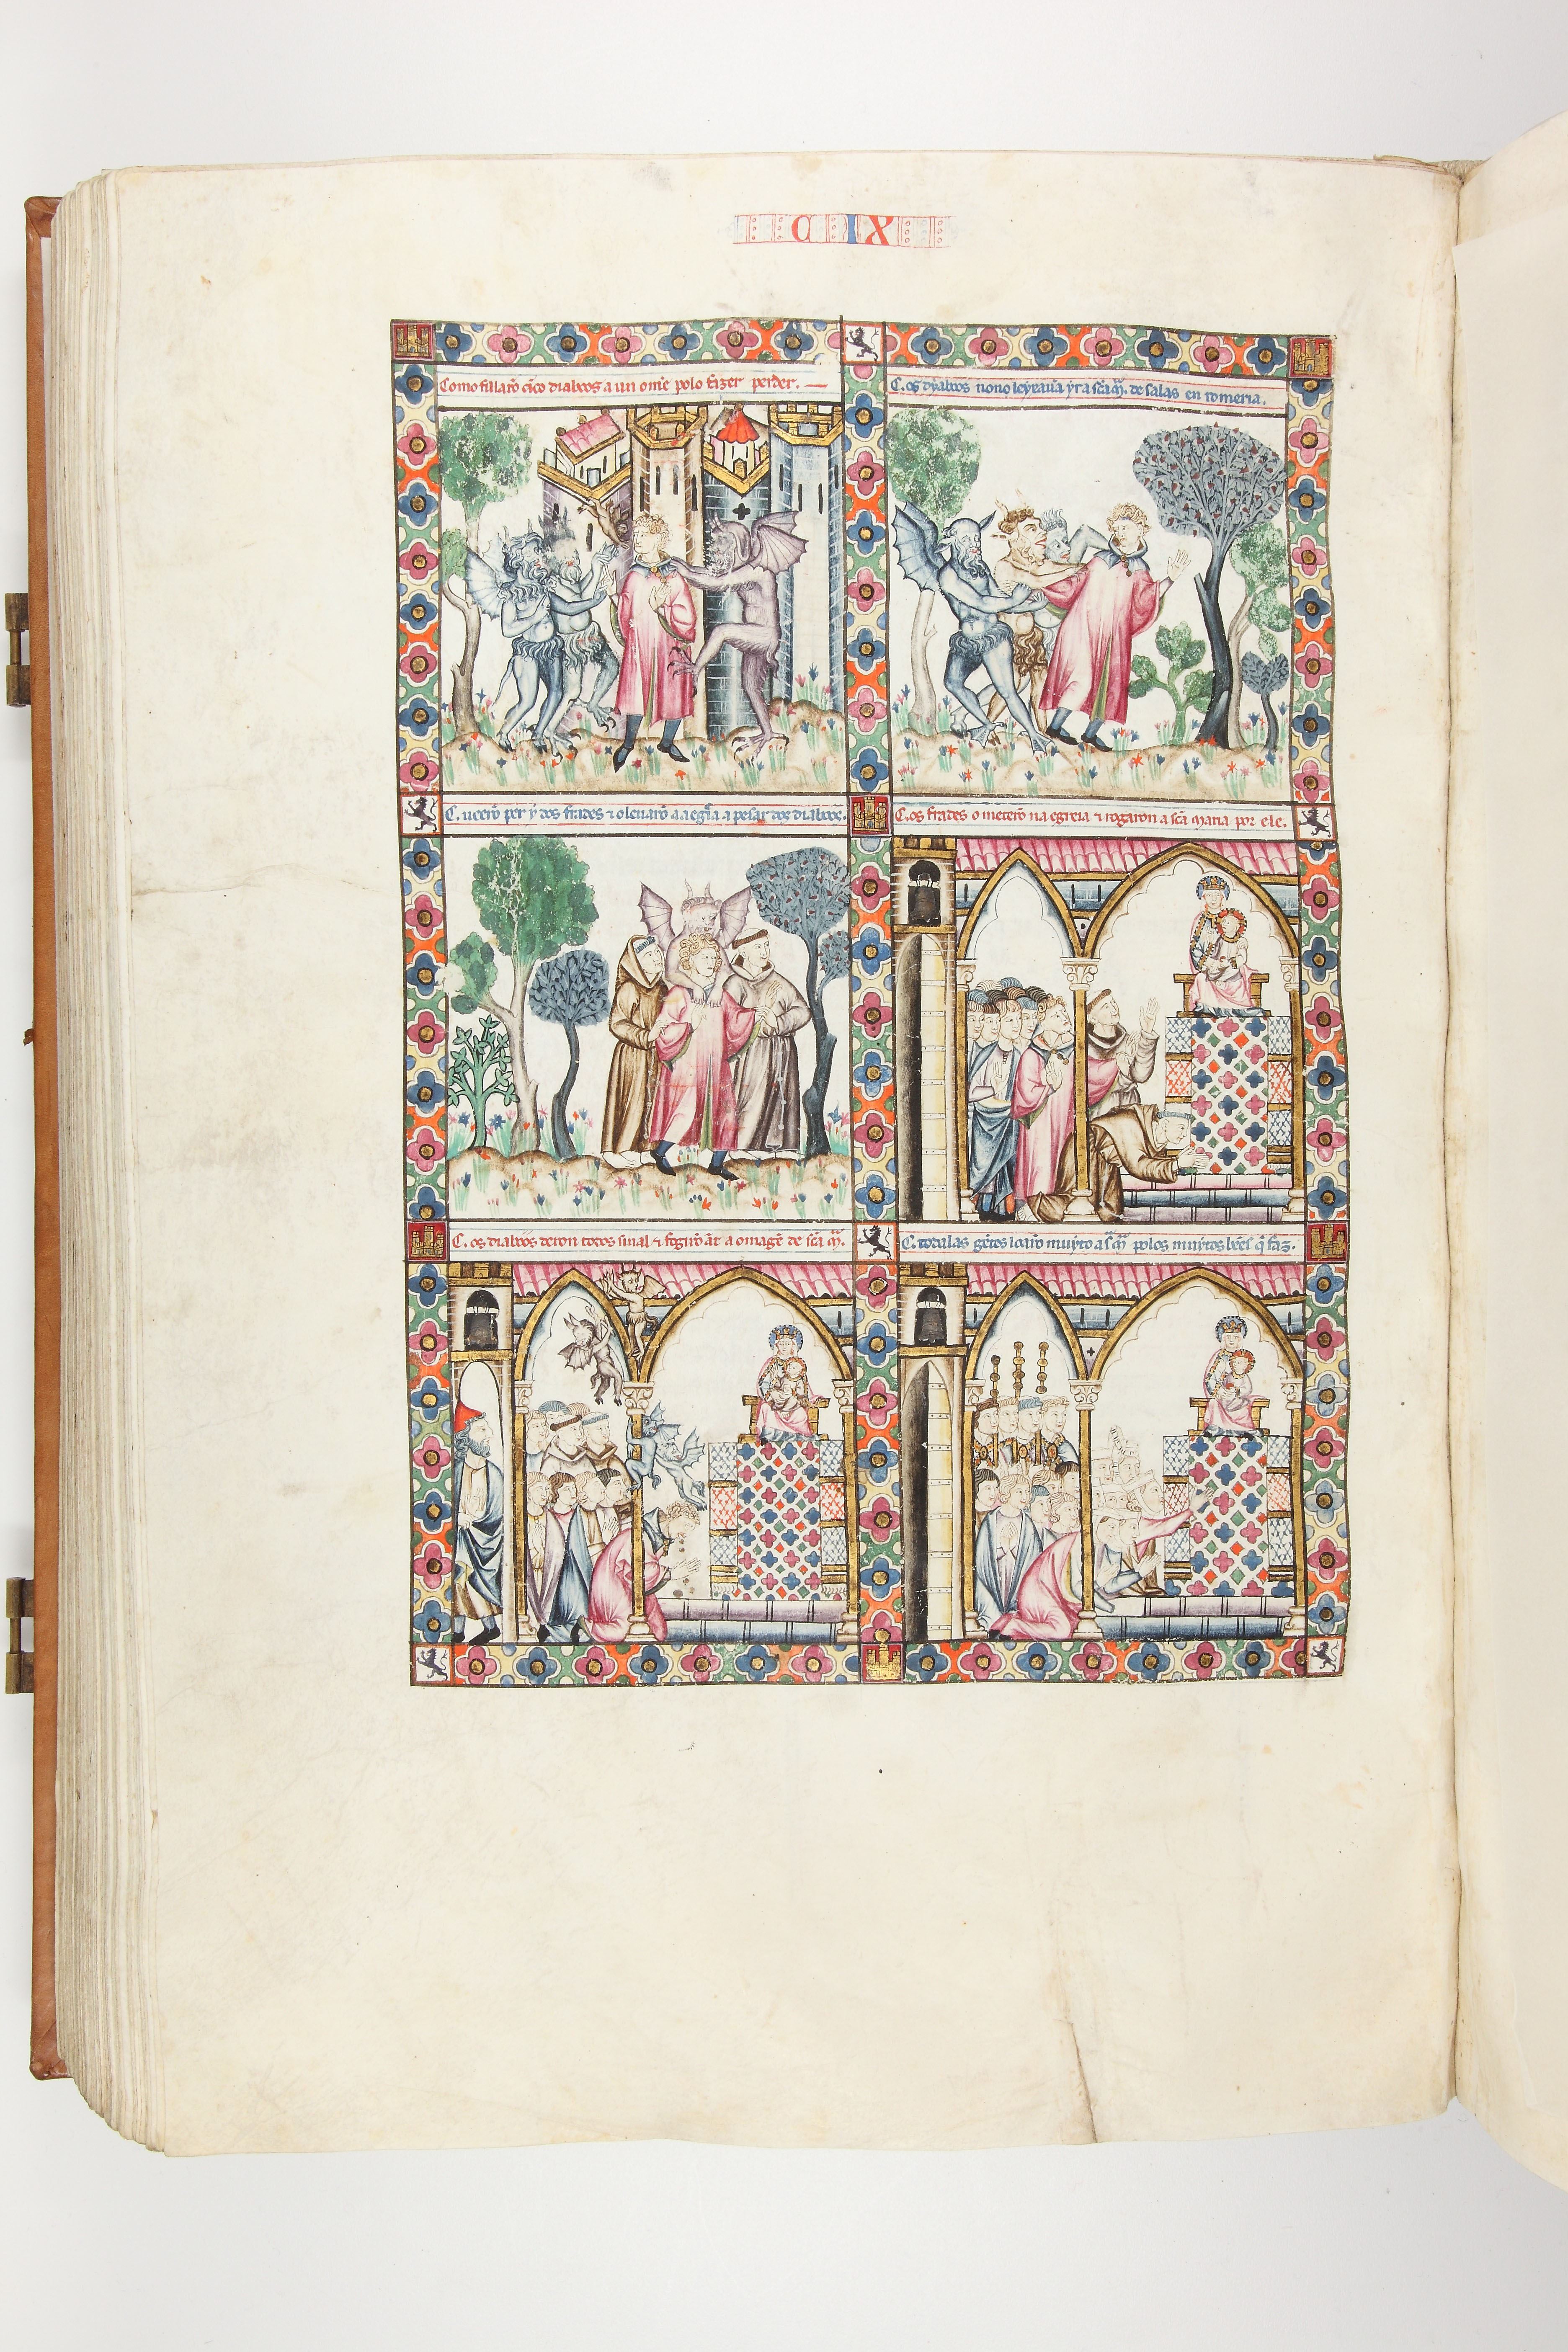 CIX
Como fillarõ cĩco diaboos a un ome polo fazer perder.
C. os dyaboos nono leyxavã yr a sc̃a m̃. de salas en romeria.
C. veerõ per y dos frades ⁊ o levarõ aa egr̃ia a pesar dos diaboos.
C. os frades o meterõ na egreia ⁊ rogaron a sc̃a maria por ele.
C. os diaboos deron todos sinal ⁊ fogirõ ãt a omagẽ de sc̃a m̃.
C. todalas gẽtes loarõ muyto a s̃ m̃ polos muytos bẽes q̃ faz.